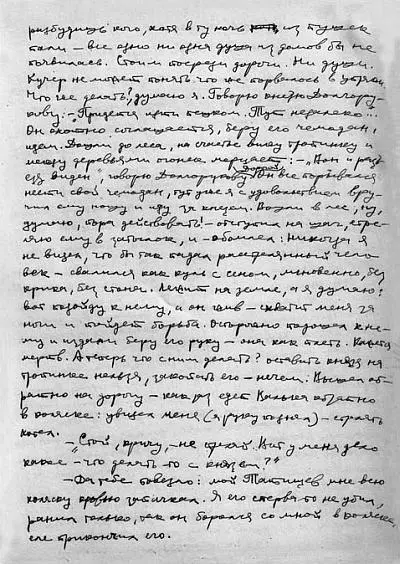 разбудишь кого, хотя в ту ночь из пушек
пали – все одно ни одна душа из домов бы не
появилась. Стоим посреди дороги. Ни души.
Кучер не может понять что же порвалось в упряжи.
Что же делать? думаю я. Говорю князю Долгору-
кову: – Придется идти пешком. Тут недалеко...
Он охотно соглашается, беру его чемодан,
идем. Дошли до леса, на счастье вижу тропинку и
между деревьями огонек мерцает: – „Вон и разъ-
езд виден" говорю Долгорукову. Он все порывался
нести свой чемодан, тут уже я с удовольствием вру-
чил ему ношу и иду за князем. Вошли в лес, ну,
думаю, пора действовать! – отступил на шаг, стре-
ляю ему в затылок, и – обомлел: никогда я
не видел, что бы так падал расстрелянный чело-
век – свалился как куль с сеном, мгновенно, без
крика, без стона. Лежит на земле, а я думаю:
вот подойду к нему, а он жив – схватит меня за
ноги и пойдет борьба. Осторожно подошел к не-
му и издали беру его руку – она как плеть. Кажется
мертв. А теперь что с ним делать? оставить князя на
тропинке нельзя, закопать его – нечем. Вышел об-
ратно на дорогу – как раз едет обратно
в коляске: увидел меня (я руку поднял) – стрелять
хотел.
– „Стой, кричу, – не стреляй. Вот у меня дело
какое – что делать-то с князем?"
– Да тебе повезло: мой Татищев мне всю
коляску кровью запачкал. Я его стерва-то не убил,
ранил только, так он боролся со мной в коляске,
еле прикончил его.